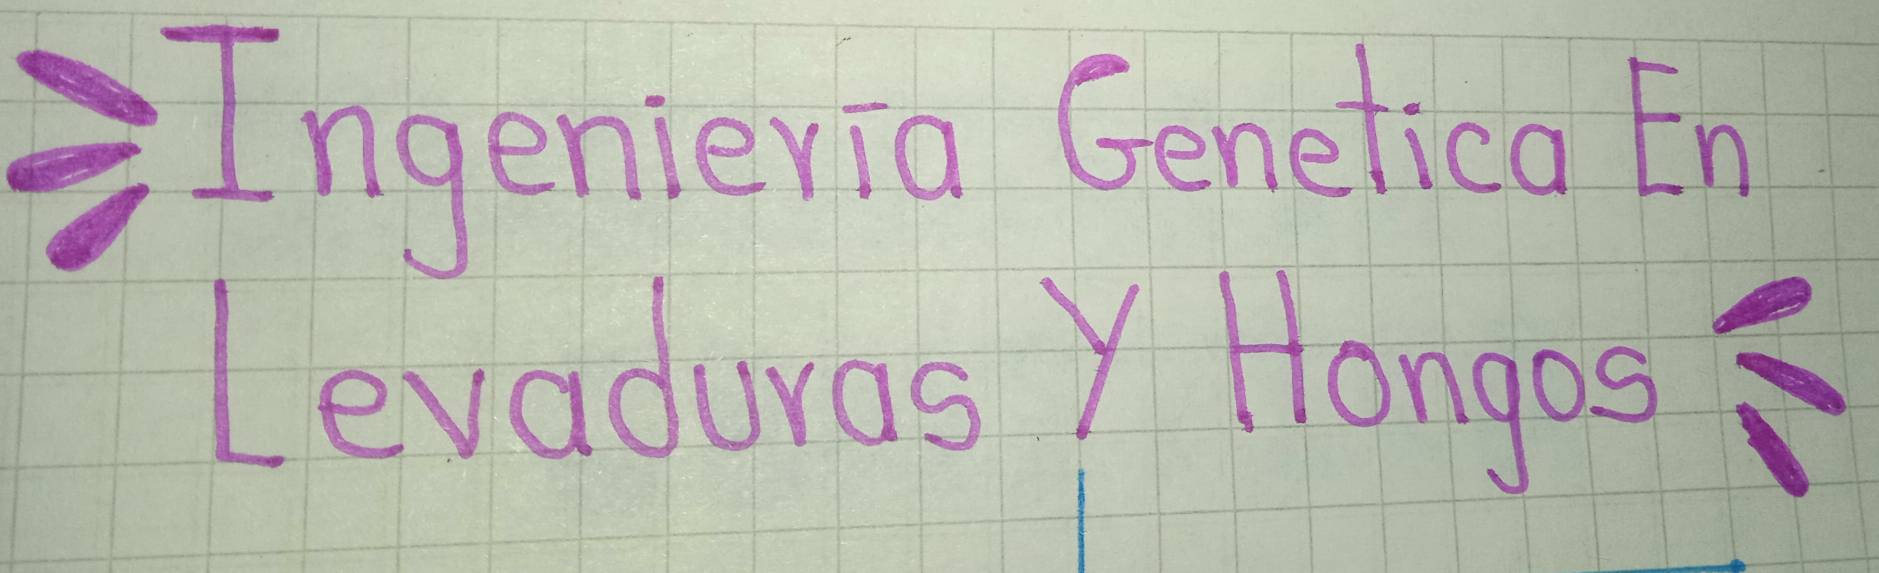 Ingeniería Genetica En
Levaduras Y Hongos